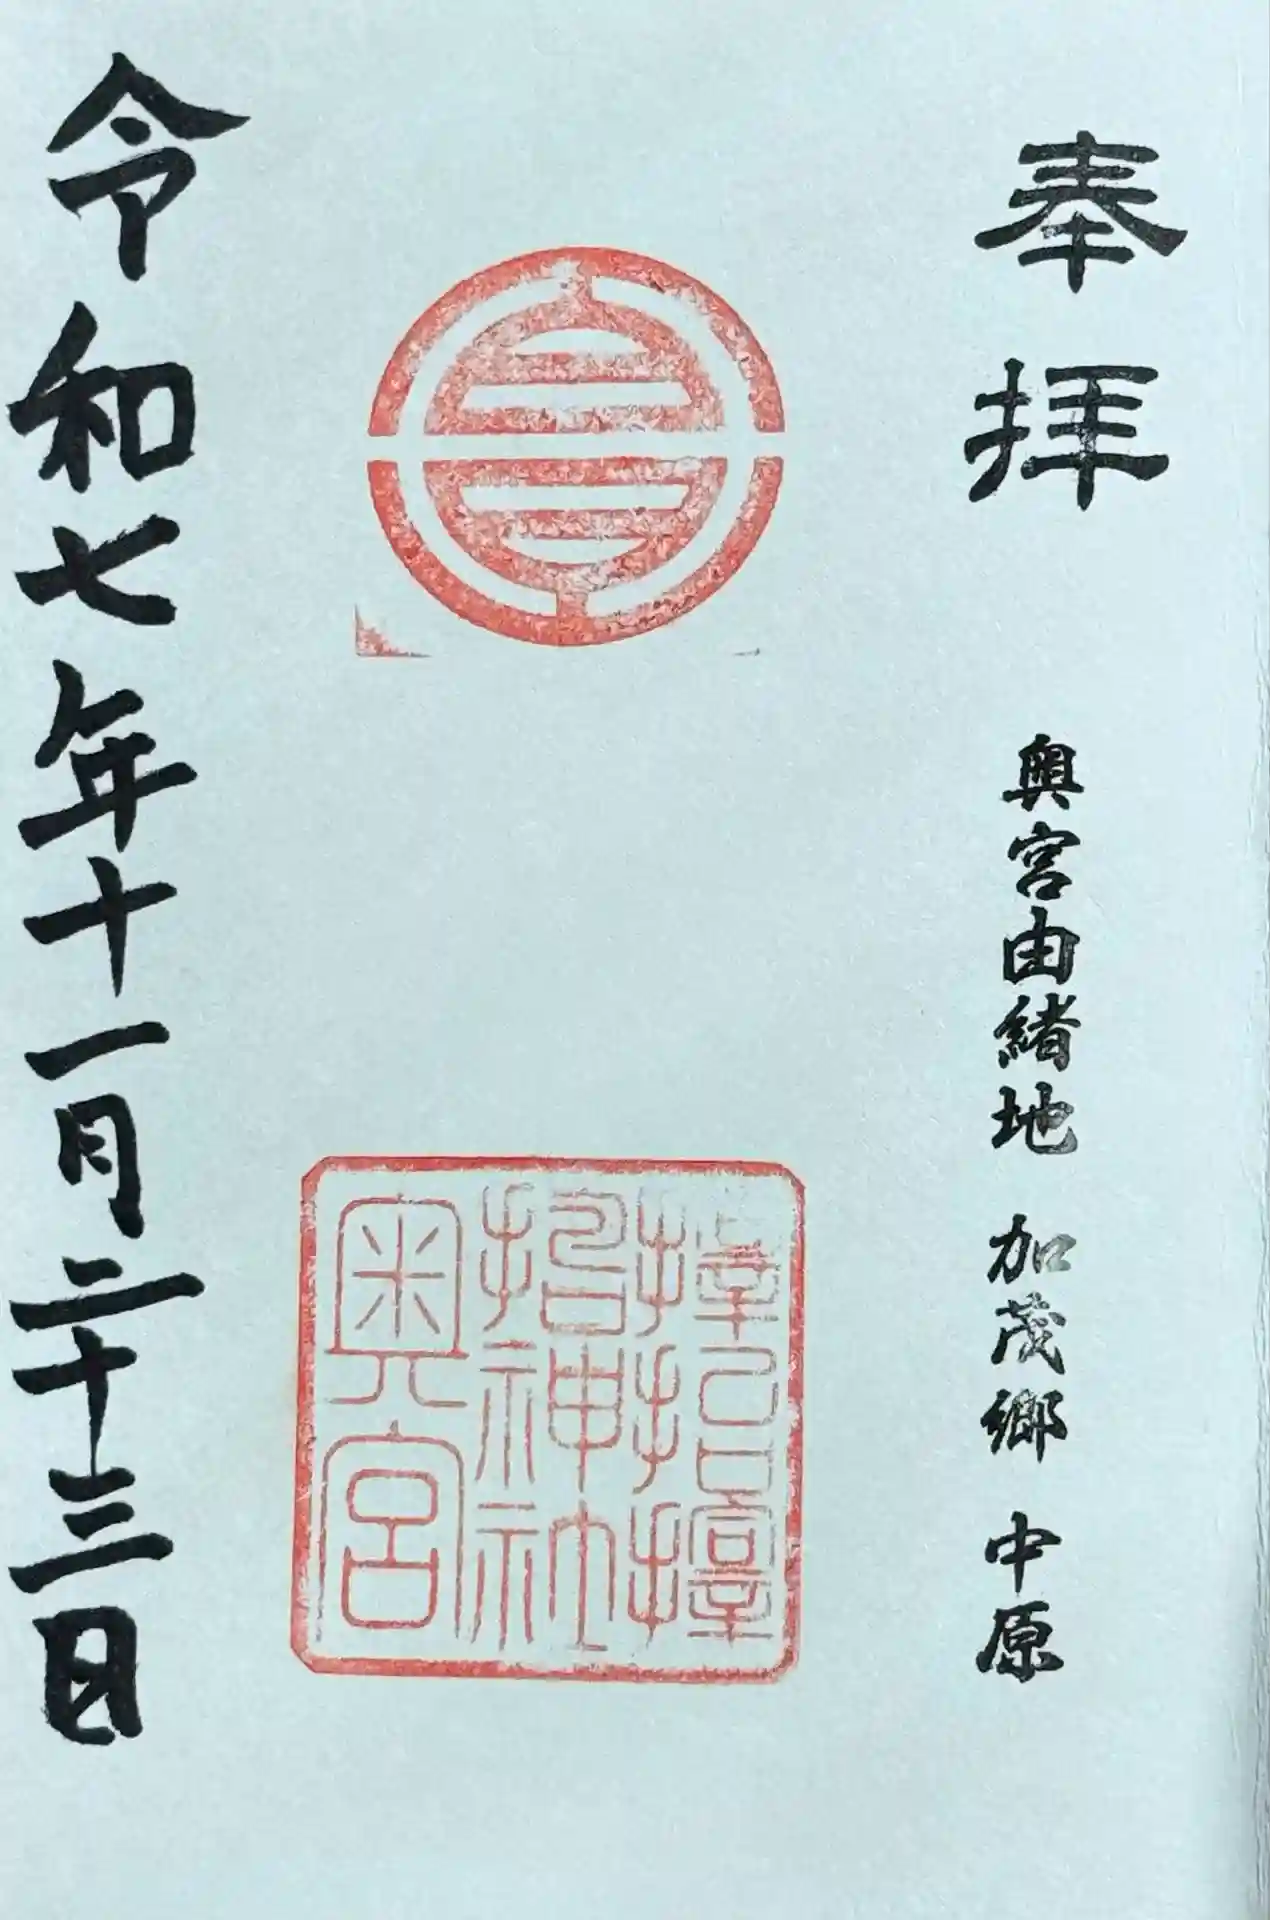 奉拝
奥宮由緒地 加茂郷 中原
神社
奥宮
令和七年十一月二十三日